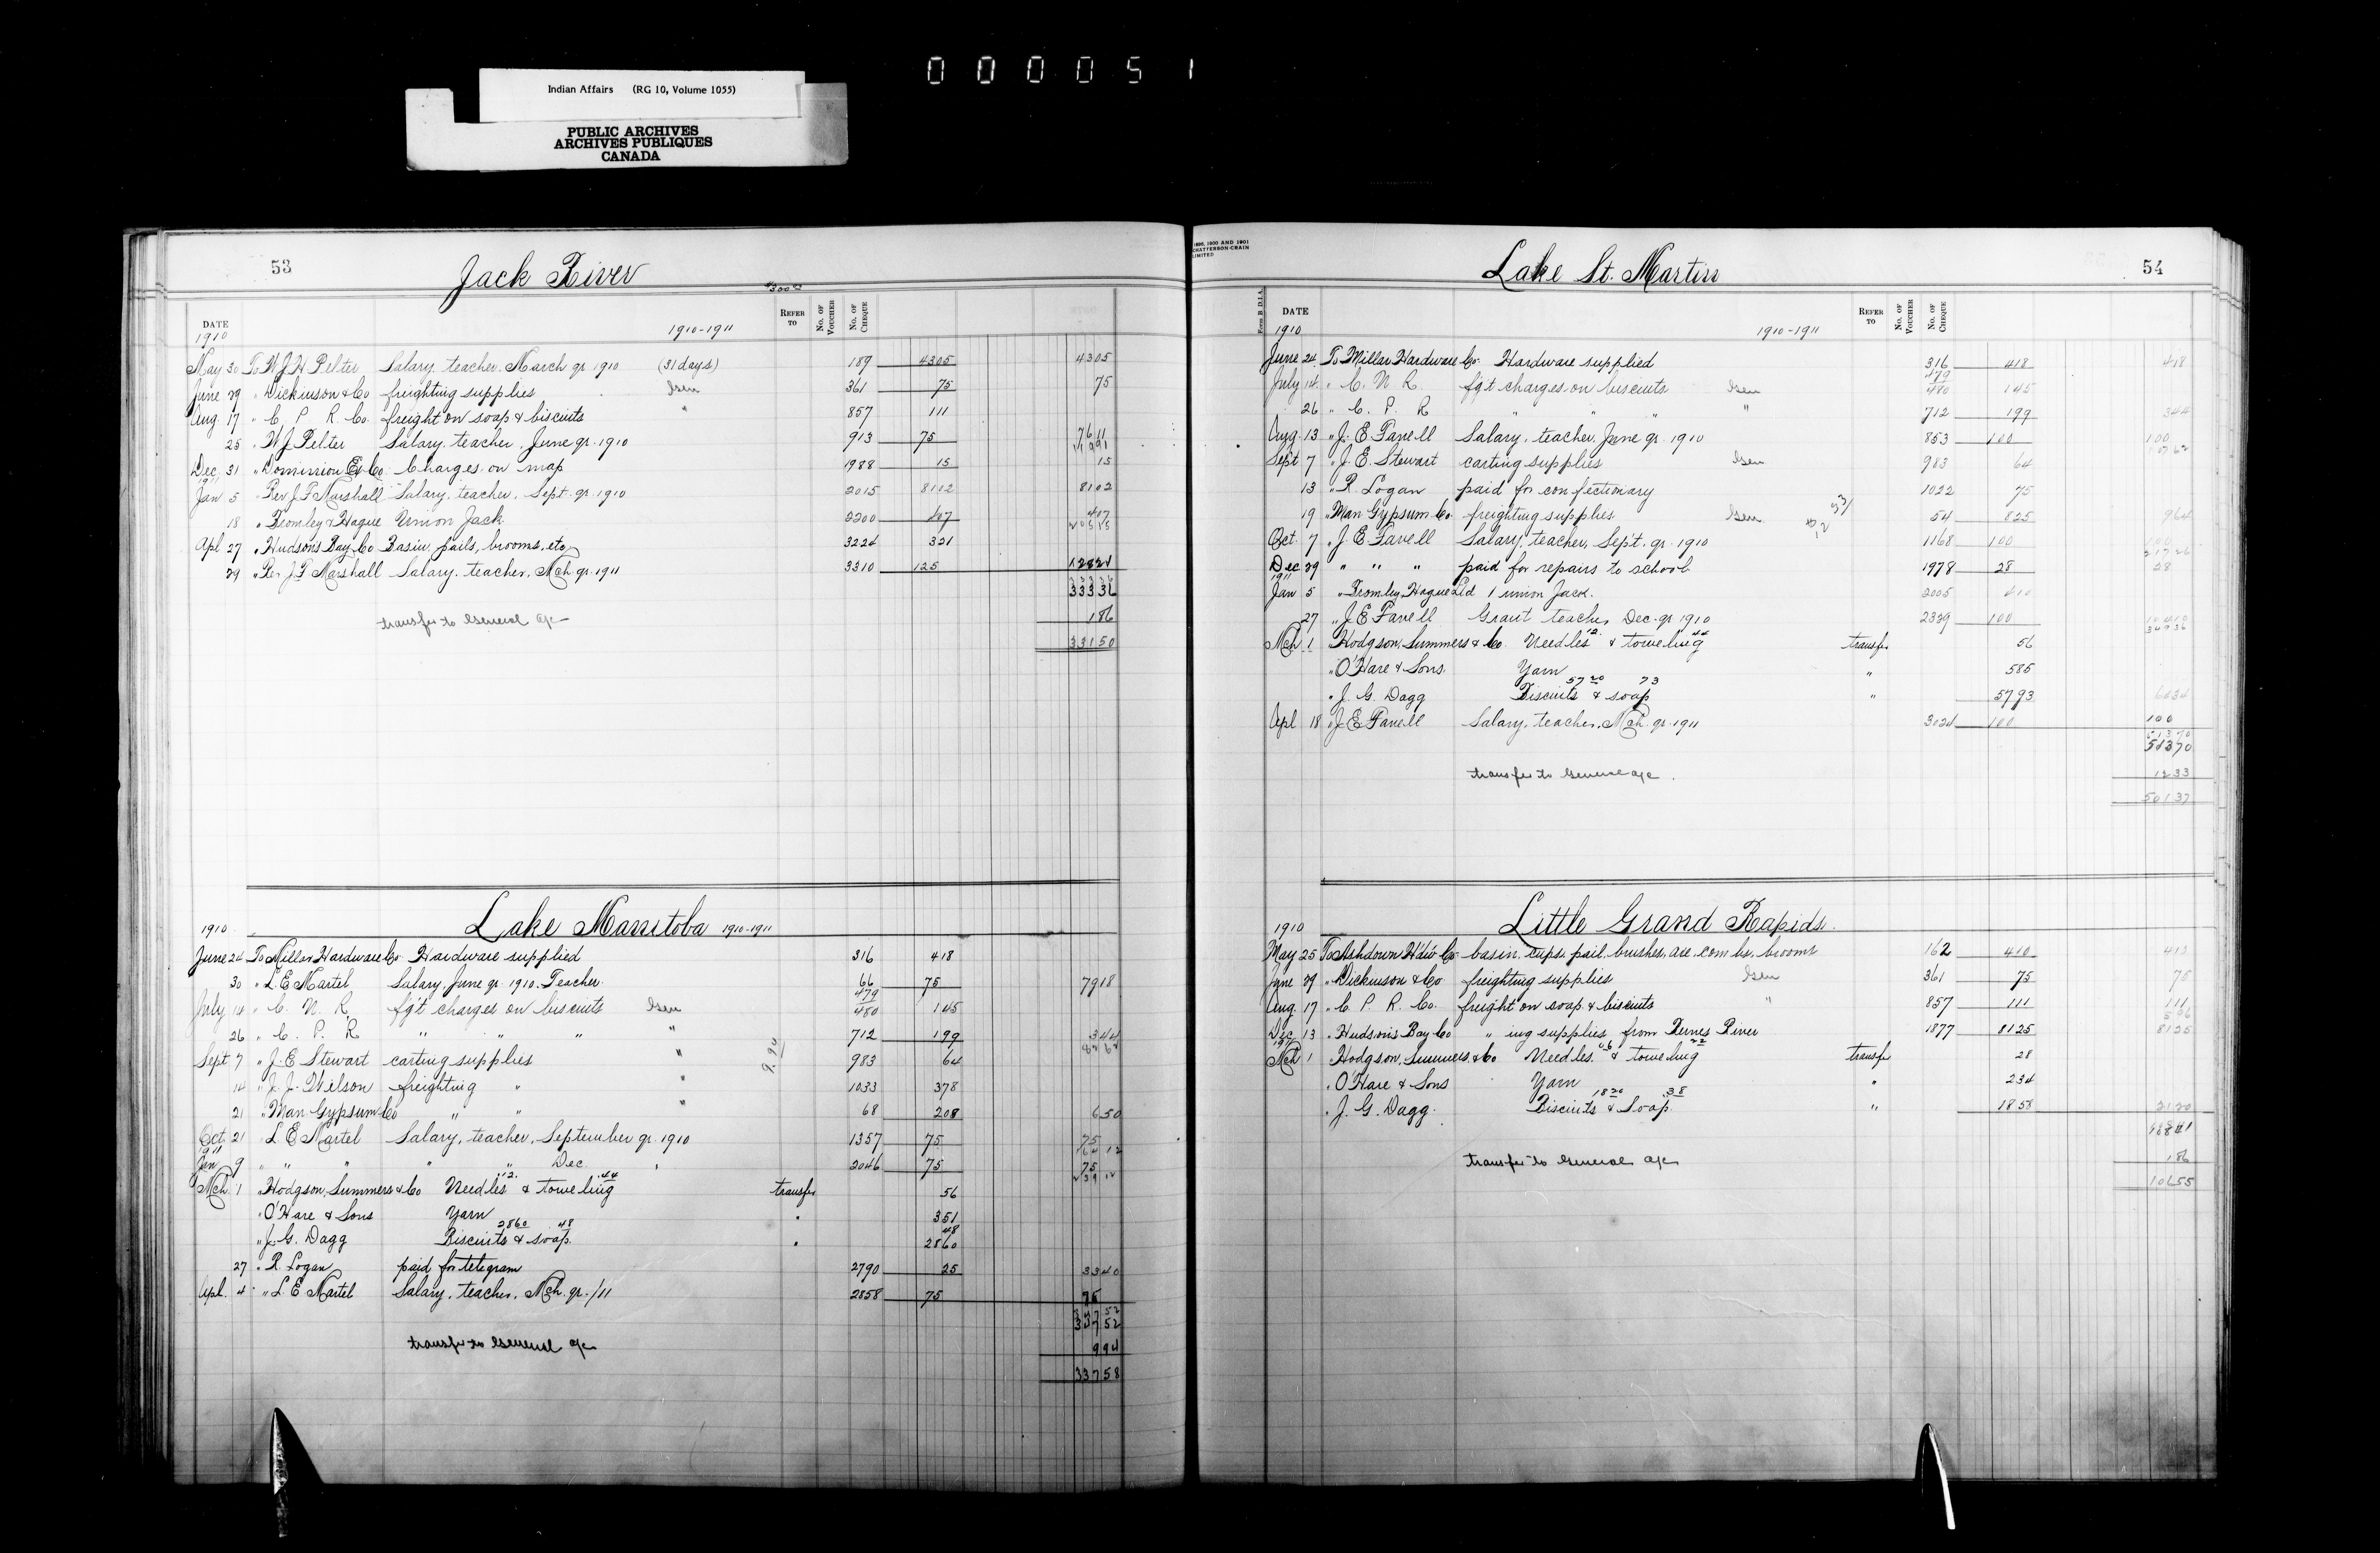 000051
Indian Affairs (RG 10, Volume 1055)
PUBLIC ARCHIVES
ARCHIVES PUBLIQUES
CANADA
53
Jack River
DATE
REFER TO
No. OF VOUCHER
No. OF CHEQUE
1910
1910-1911
May 30 To W J H Pelter Salary, teacher, March qr 1910 (31 days) 189 4305 4305
June 29 " Dickinson & Co freighting supplies Gen 361 75 75
Aug. 17 " C P R Co. freight on soap & biscuits " 857 111
25 " W J Pelter Salary, teacher, June qr. 1910 913 75 7611
Dec 31 " Dominion Ex Co. Charges on map 1988 15 15
1911
Jan 5 " Rev J F Marshall Salary, teacher, Sept. qr 1910 2015 8102 8102
18 " Bromley & Hague Union Jack 2200 407 417
Apl 27 " Hudsons Bay Co Basin, pails, brooms, etc 3224 321
29 " Rev J F Marshall Salary, teacher, Mch qr. 1911 3310 125 12821
33336
transfer to General a/c 186
33150
1910
Lake Manitoba 1910-1911
June 24 To Millar Hardware Co. Hardware supplied 316 418
30 " L. E Martel Salary, June qr. 1910. Teacher 66 75 7918
July 14 " C. N. R. fg't charges on biscuits Gen 479 480 145
26 " C. P. R " " " " 712 199 344
Sept 7 " J. E Stewart carting supplies " 983 64
14 " J. J. Wilson freighting " " 1033 378
21 " Man Gypsum Co " " " 68 208 650
9.94
Oct 21 L. E Martel Salary, teacher, September qr 1910 1357 75 75
1911
Jan 9 " " " " " Dec. " 2046 75 75
Mch 1 " Hodgson, Summers & Co Needles 12 & toweling 44 transfer 56
" O'Hare & Sons Yarn " 351
" J. G. Dagg Biscuits 2860 & soap 48 " 48 2860
27 " R. Logan paid for telegram 2790 25 3340
Apl. 4 " L. E Martel Salary, teacher, Mch. qr. /11 2858 75 75
34752
transfer to General a/c 994
33758
1899, 1900 AND 1901
CHATTERSON-CRAIN
LIMITED
Lake St. Martin
54
Form B D.I.A.
DATE
REFER TO
No. OF VOUCHER
No. OF CHEQUE
1910
1910-1911
June 24 To Millar Hardware Co. Hardware supplied 316 418 418
July 14 " C. N. R. fg't charges on biscuits Gen 479 480 145
26 " C. P. R " " " " 712 199 344
Aug 13 " J. E Favell Salary, teacher, June qr 1910 853 100 100
10762
Sept 7 " J. E. Stewart carting supplies Gen 983 64
13 " R. Logan paid for confectionary 1022 75
19 " Man Gypsum Co. freighting supplies Gen. 54 825 964
Oct. 7 " J. E Favell Salary, teacher, Sept. qr. 1910 1168 100 100
21726
Dec 29 " " " paid for repairs to school 1978 28 28
1911
Jan 5 " Bromley Hague Ltd 1 union Jack 2005 410
27 " J. E Favell Grant teacher, Dec. qr 1910 2339 100
Mch 1 Hodgson, Summers & Co. Needles 12 & toweling 44 transfer 56
" O'Hare & Sons. Yarn " 585
" J. G. Dagg Biscuits 5720 & soap 73 " 5793 6434
Apl 18 " J E Favell Salary, teacher, Mch. qr. 1911 3024 100 100
51370
transfer to General a/c 1233
50137
1910
Little Grand Rapids
May 25 To Ashdown H'dw Co. basin, cups, pail, brushes, axe, combs, brooms 162 410 410
June 29 " Dickinson & Co freighting supplies Gen 361 75 75
Aug. 17 " C. P. R. Co. freight on soap & biscuits " 857 111 111
Dec 13 " Hudsons Bay Co " ing supplies from Berens River 1877 8125 8125
1911
Mch 1 " Hodgson, Summers & Co Needles 06 & toweling 22 transfer 28
" O'Hare & Sons Yarn " 234
" J. G. Dagg. Biscuits 1820 & Soap 38 " 1858 2120
10841
transfer to General a/c 186
10655